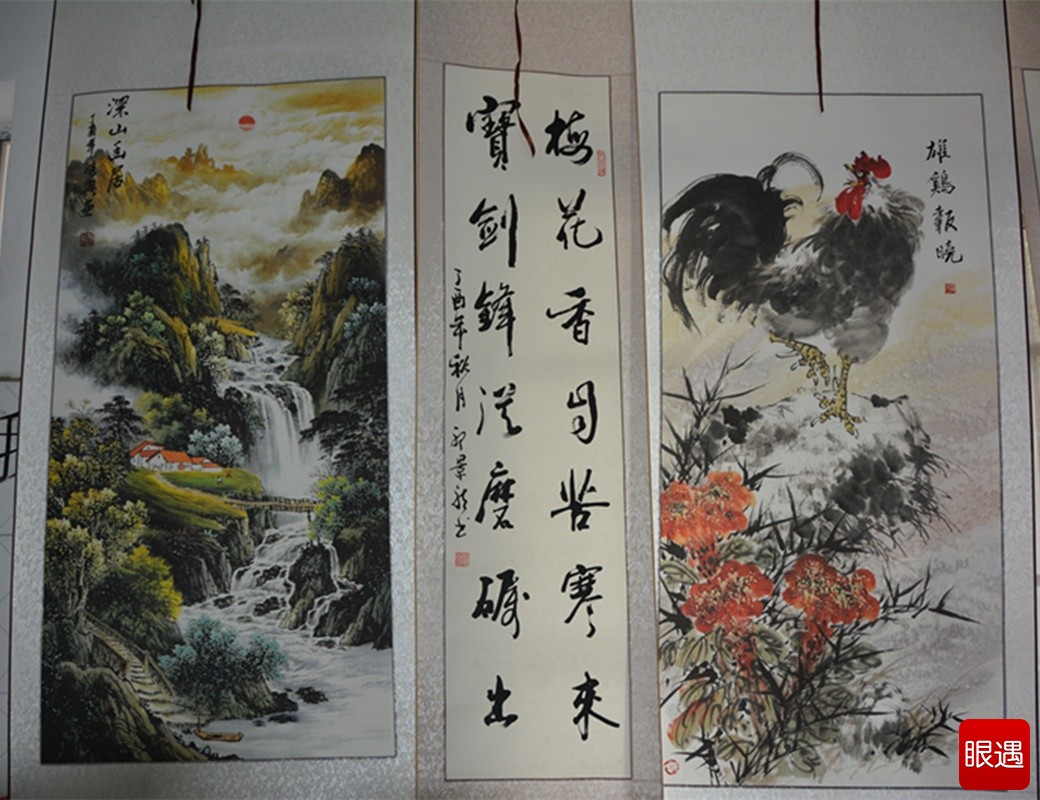 深山幽居
丁酉年
梅花香自苦寒來
寶劍鋒從磨礪出
丁酉年秋月
雄鷄報曉
眼遇